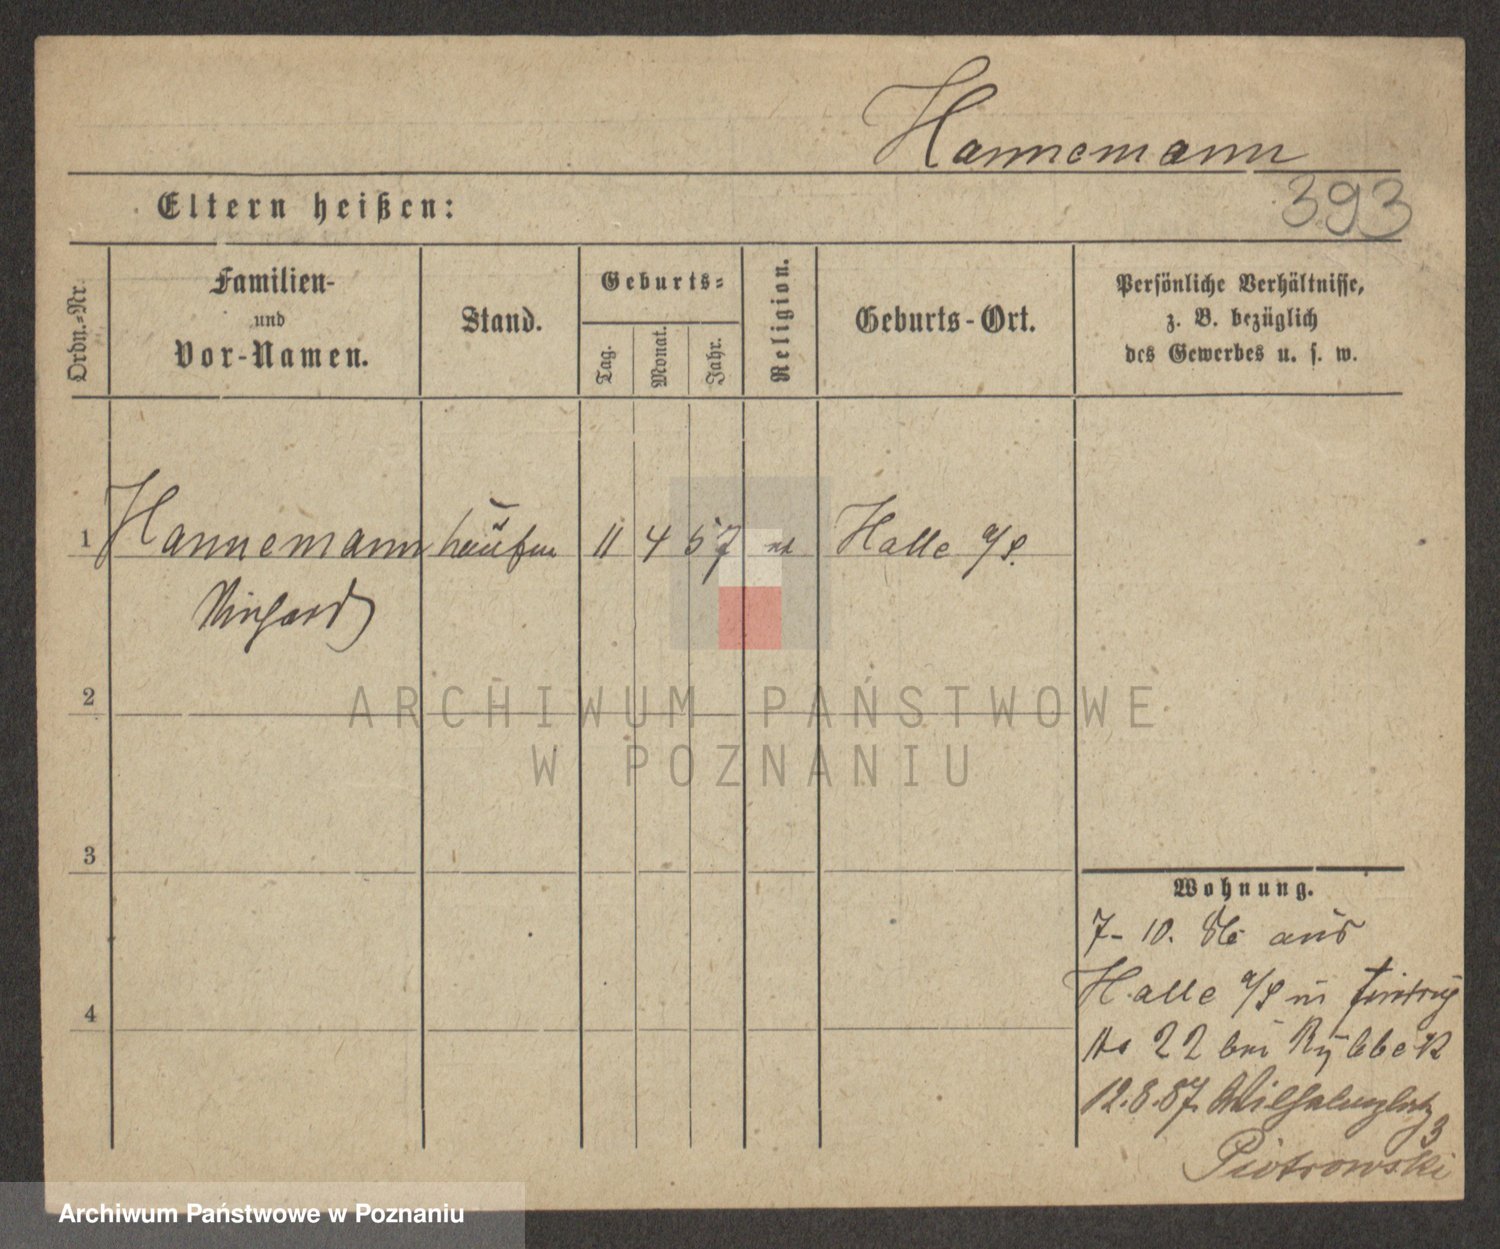 Hannemann
393
Eltern heißen:
Ordn.-Nr.
Familien-
und
Vor-Namen.
Stand.
Geburts-
Tag.
Monat.
Jahr.
Religion.
Geburts-Ort.
Persönliche Verhältnisse,
z. B. bezüglich
des Gewerbes u. s. w.
1 Hannemann 11 4 57 Halle a/S.
2
ARCHIWUM PAŃSTWOWE
W POZNANIU
3
4
Wohnung.
7-10. 86 aus
Halle a/S in
No 22 bei
12.8.87. Wilhelmplatz
3
Piotrowski
Archiwum Państwowe w Poznaniu